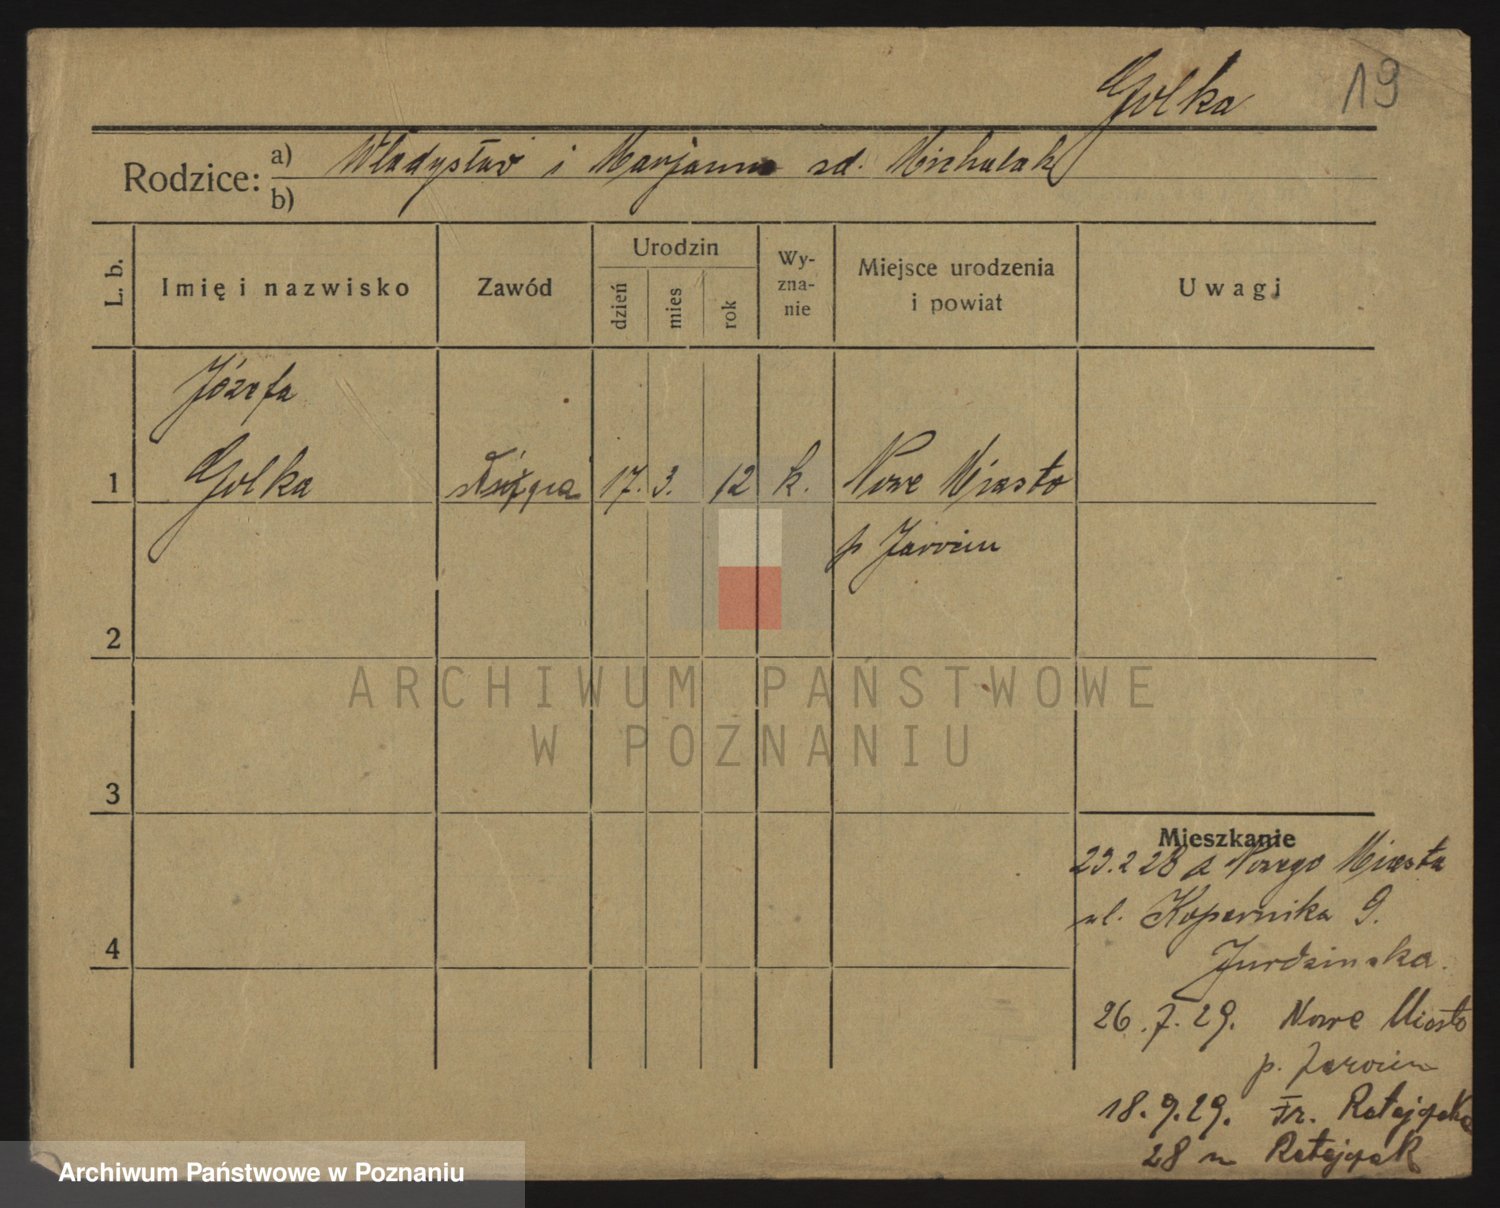 Golka 19
Rodzice: a) Władysław i Marjanna zd. Michalak
b)
L. b. Imię i nazwisko Zawód Urodzin dzień mies rok Wy-zna-nie Miejsce urodzenia i powiat Uwagi
Józefa
1 Golka służąca 17. 3. 12 k. Nowe Miasto
p Jarocin
2
ARCHIWUM PAŃSTWOWE
W POZNANIU
3
Mieszkanie
23.2 28 z Nowego Miasta
ul. Kopernika 9.
4
26.7.29. Nowe Miasto
p. Jarocin
18.9.29. Fr. Ratajczaka
28 u Ratajczak
Archiwum Państwowe w Poznaniu